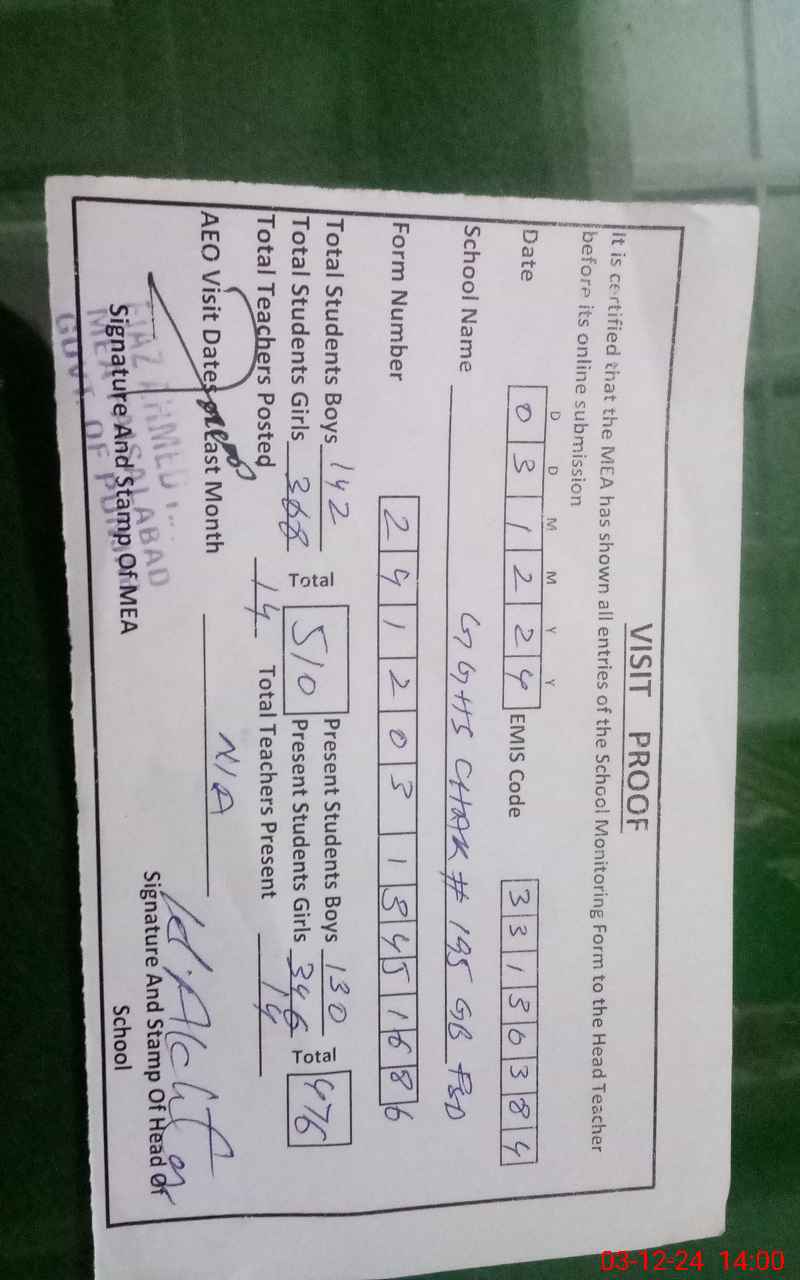 VISIT PROOF
It is certified that the MEA has shown all entries of the School Monitoring Form to the Head Teacher
before its online submission
D D M M Y Y
Date 0 3 1 2 2 4 EMIS Code 3 3 1 3 0 3 8 4
School Name GGHS CHAK # 195 GB FSD
Form Number 2 4 1 2 0 3 1 3 4 5 1 6 8 6
Total Students Boys 142 Present Students Boys 130
Total 510 Total 476
Total Students Girls 368 Present Students Girls 346
Total Teachers Posted 14 Total Teachers Present 14
AEO Visit Dates Last Month N/A
AHMED
MEA FAISALABAD
GOVT. OF
Signature And Stamp Of MEA
Signature And Stamp Of Head Of
School
03-12-24 14:00